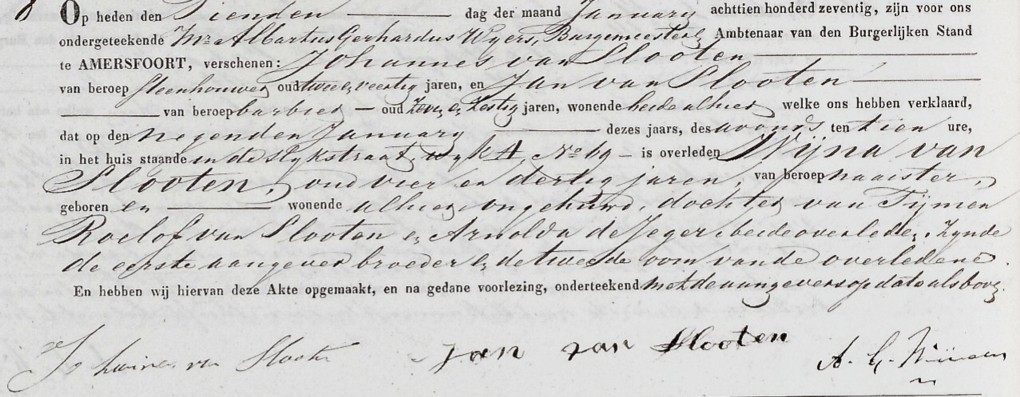 8 Op heden den Tienden dag der maand January achttien honderd zeventig, zijn voor ons
ondergeteekende Mr. Albartus Gerhardus Wijers, Burgemeester, Ambtenaar van den Burgerlijken Stand
te AMERSFOORT, verschenen: Johannes van Slooten
van beroep Steenhouwer oud twee en veertig jaren, en Jan van Slooten
van beroep barbier oud zeven en zestig jaren, wonende beide alhier welke ons hebben verklaard,
dat op den negenden January dezes jaars, des avonds ten tien ure,
in het huis staande in de Slykstraat, wyk A, No 69 is overleden Wijna van
Slooten, oud vier en dertig jaren, van beroep naaister,
geboren en wonende alhier, ongehuwd, dochter van Tijmen
Roelof van Slooten en Arnolda de Jeger beide overleden, Zynde
de eerste aangever broeder en de tweede oom van de overledene.
En hebben wij hiervan deze Akte opgemaakt, en na gedane voorlezing, onderteekend met de aangevers op dato als boven.
Johannes van Slooten Jan van Slooten A. G. Wijers